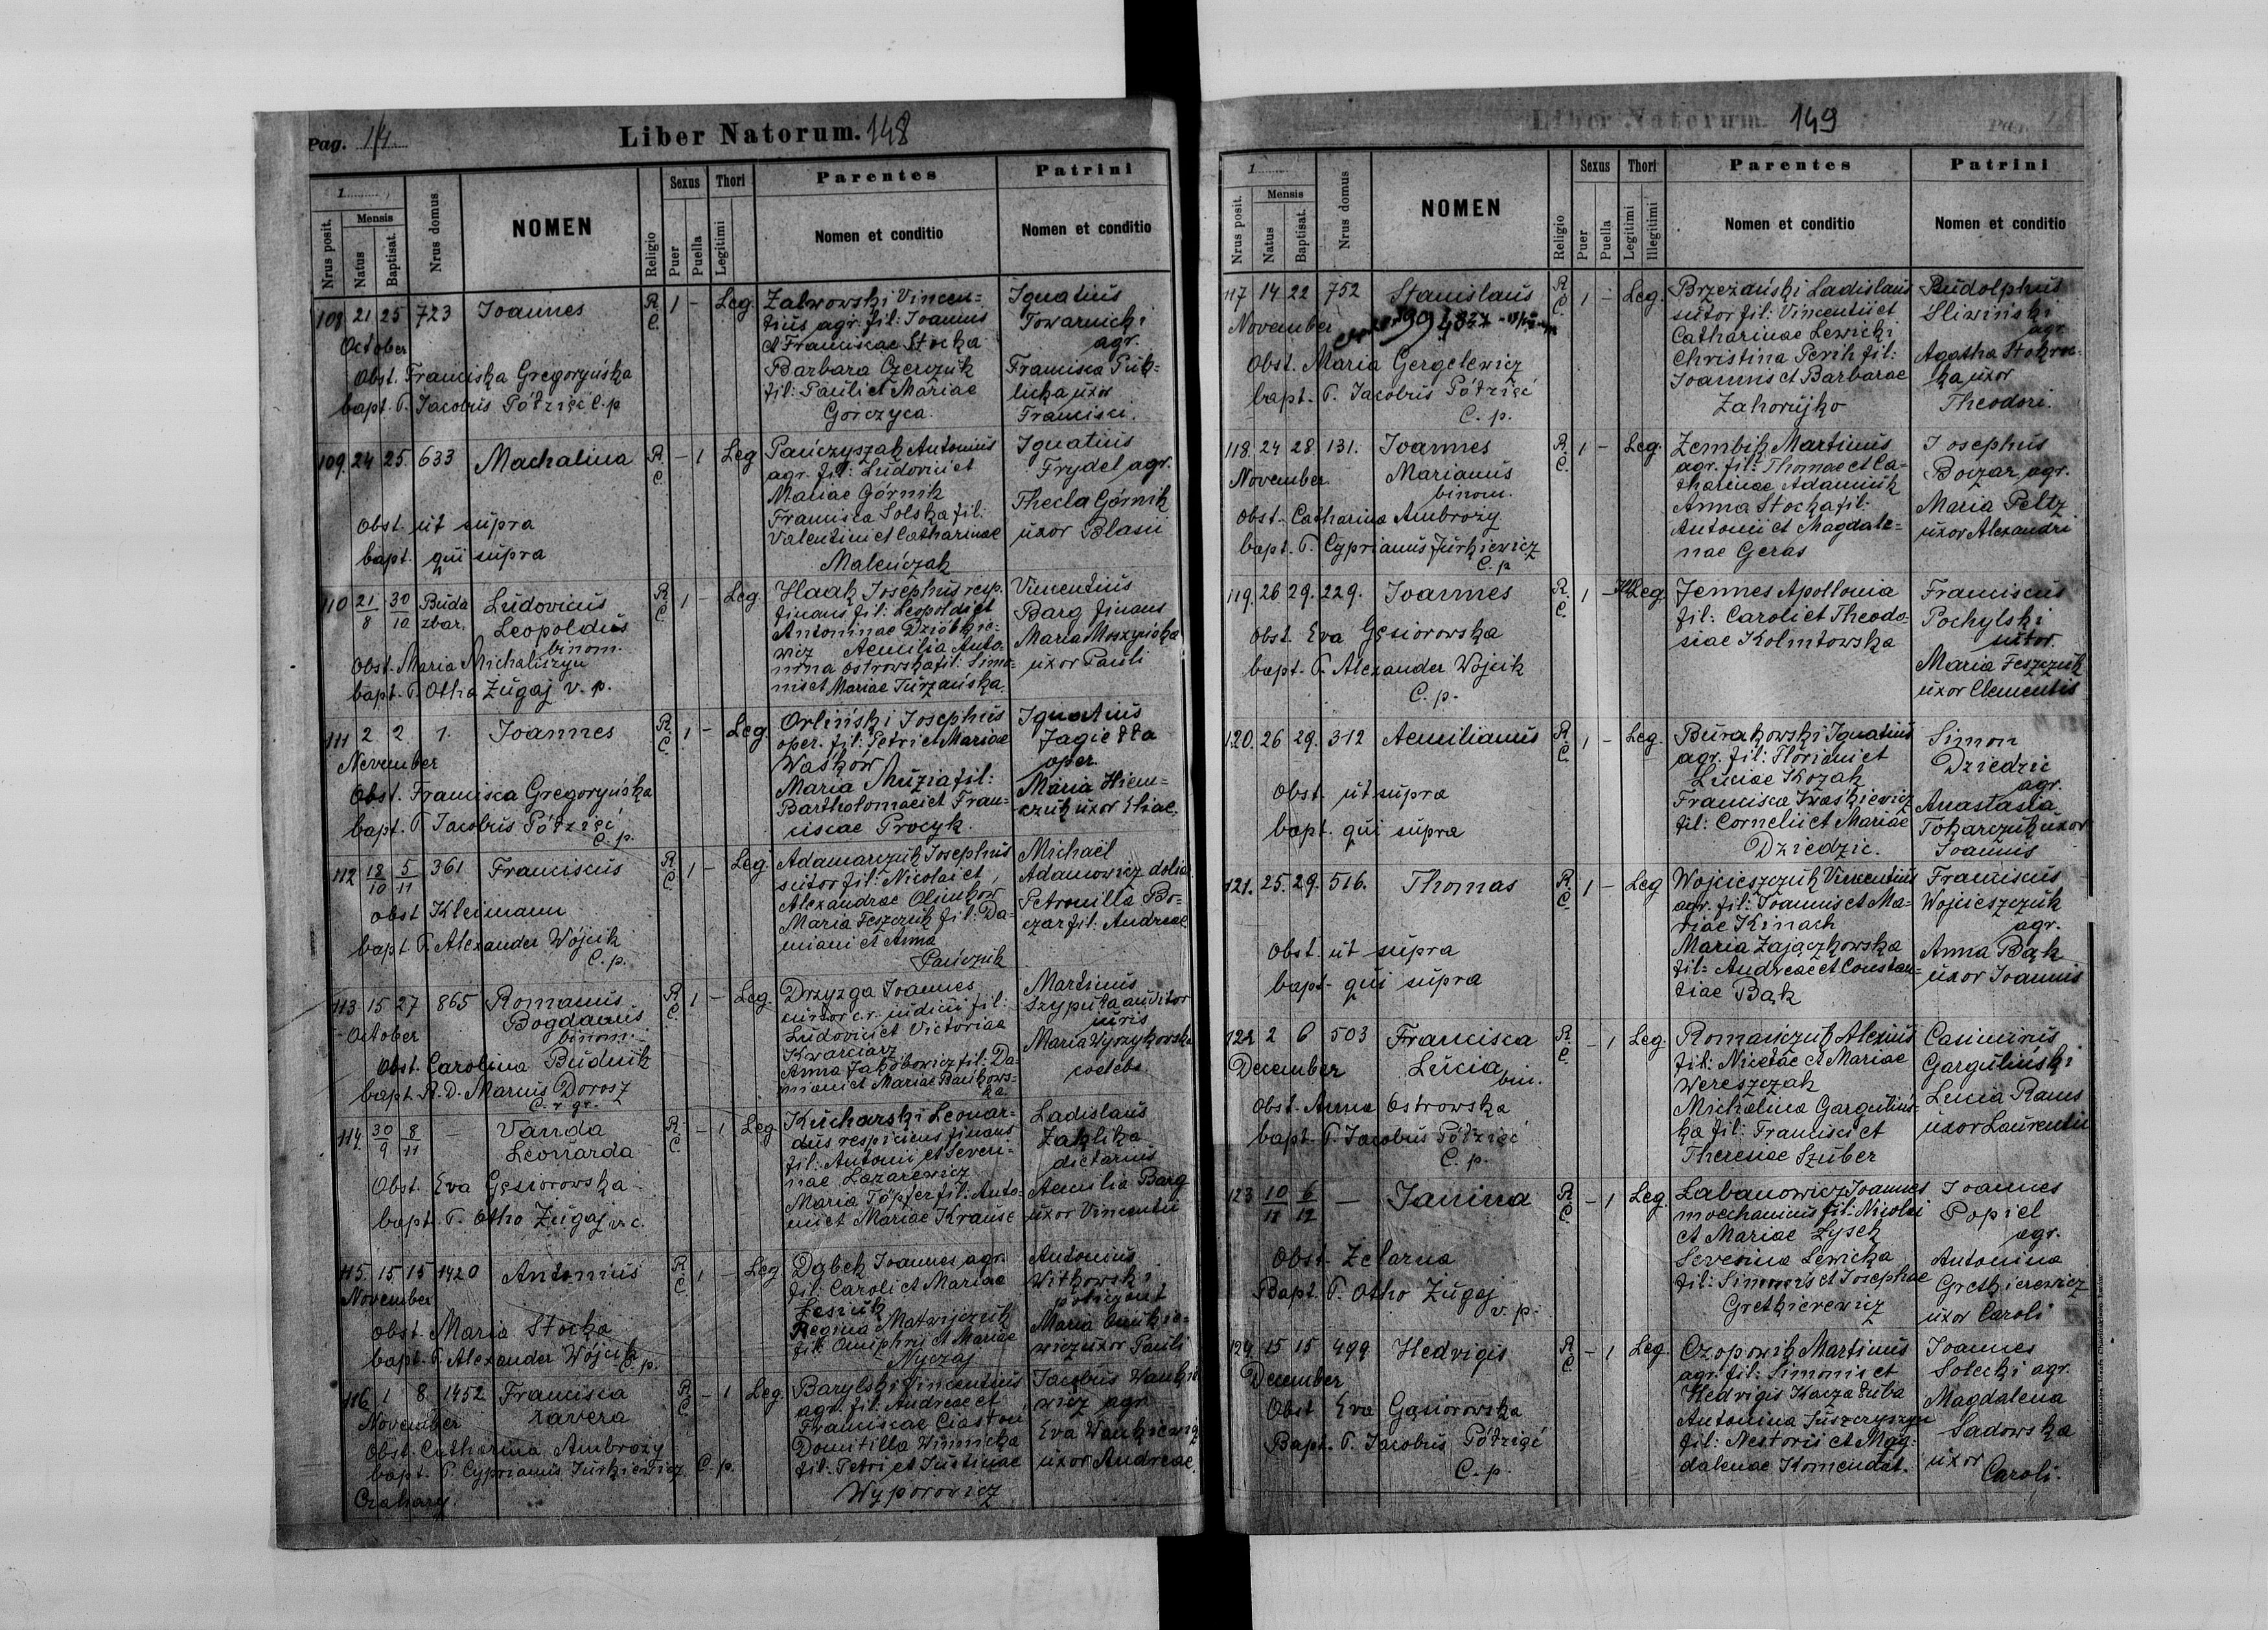 Pag. 14
Liber Natorum. 148
1
Nrus posit.
Mensis
Natus
Baptisat.
Nrus domus
NOMEN
Religio
Sexus
Puer
Puella
Thori
Legitimi
Parentes
Nomen et conditio
Patrini
Nomen et conditio
108 21 25 723 Joannes R. C. 1 - Leg.
October
Obst. Franciska Gregoryńska
bapt. P. Jacobus Półzięć C. p
Zalwowski Vincen=
tius agr. fil: Joannis
et Franciscae Stocka
Barbara Czerczuk
fil: Pauli et Mariae
Gorczyca.
Ignatius
Towarnicki
agr.
Francisca Puk=
licka uxor
Francisci.
109. 24 25. 633 Machalina R. C. - 1 Leg
Obst. ut supra
bapt. qui supra
Pańczyszak Antonius
agr. fil: Ludovici et
Mariae Górnik
Francisca Solska fil:
Valentini et Catharinae
Maleńczak
Ignatius
Frydel agr.
Thecla Górnik
uxor Blasii
110 21/8 30/10 Buda zbar. Ludovicus R. C. 1 - Leg.
Leopoldus
binom.
Obst. Maria Michaliszyn
bapt. P. Otho Zugaj v. p.
Haak Josephus resp.
finans fil: Leopoldi et
Antoninae Dziobkie=
wicz Aemilia Anto=
nina Ostrowska fil: Simo=
nis et Mariae Turzańska.
Vincentius
Barg finans
Maria Moszyńska
uxor Pauli
111 2 2 1. Joannes R. C. 1 - Leg.
November
Obst. Francisca Gregoryńska
bapt. P. Jacobus Półzięć
C. p.
Orliński Josephus
oper. fil: Petri et Mariae
Waśków
Maria Muzia fil:
Bartholomaei et Fran=
ciscae Procyk.
Ignatius
Jagiełła
oper.
Maria Hiem=
czuk uxor Eliae.
112 18/10 5/11 361 Franciscus R. C. 1 - Leg.
obst Kleimann
bapt P. Alexander Wójcik
C. p.
Adamarczuk Josephus
sutor fil: Nicolai et
Alexandrae Olinkow
Maria Feszczuk fil: Da=
miani et Anna
Pańczuk
Michaël
Adamowicz doliar.
Petronilla Bo=
czar fil: Andreae
113 15 27 865 Romanus R. C. 1 - Leg.
October
Bogdanus
binom.
Obst. Carolina Budnik
bapt. R. D. Marius Dorosz
C. r. gr.
Drzyzga Joannes
fil:
Ludovici et Victoriae
Kwarciarz
Anna Jakóbowicz fil: Da=
miani et Mariae Bankows=
ka.
Martinus
Szypuła auditor
iuris
Maria Wyrzykowska
coelebs.
114. 30/9 8/11 — Vanda R. C. - 1 Leg
Leonarda
Obst. Eva Gęsiorowska
bapt. P. Otho Zugaj v. c.
Kucharski Leonar=
dus respiciens finans
fil: Antonii et Severi=
nae Lazarewicz
Maria Töpfer fil: Anto=
nii et Mariae Krause
Ladislaus
Zaklika
dietarius
Aemilia Barg
uxor Vincentii
115. 15 15 1420 Antonius R. C. 1 - Leg
November
obst. Maria Stocka
bapt. P. Alexander Wójcik
C. p.
Dąbek Joannes agr.
fil: Caroli et Mariae
Lesiuk
Regina Matwijczuk
fil: Onuphrii et Mariae
Nyczaj
Antonius
Witkowski
policyant
Maria Onukie=
wicz uxor Pauli
116 1 8 1452 Francisca R. C. - 1 Leg.
November
Xavera
Obst. Catharina Ambroży
bapt. P. Cyprianus Jurkiewicz C. p.
Czahary.
Barylski Vincentius
agr. fil: Andreae et
Franciscae Ciastoń
Domitilla Winnicka
fil: Petri et Justinae
Wyporowicz
Jacobus Wańkie
wicz agr.
Eva Wańkiewicz
uxor Andreae.
Liber Natorum. 149
Pag.
1
Nrus posit.
Mensis
Natus
Baptisat.
Nrus domus
NOMEN
Religio
Sexus
Puer
Puella
Thori
Legitimi
Illegitimi
Parentes
Nomen et conditio
Patrini
Nomen et conditio
117 14 22 752 Stanislaus R. C. 1 - Leg.
November
Obst. Maria Gergelewicz
bapt. P. Jacobus Półzięć
C. p.
Brzezański Ladislaus
sutor fil: Vincentii et
Catharinae Lewicki
Christina Perih fil:
Joannis et Barbarae
Zahorujko
Rudolphus
Sliwiński
agr.
Agatha Stokroc=
ka uxor
Theodori.
118. 24 28 131. Joannes R. C. 1 - Leg.
November.
Marianus
binom.
Obst. Catharina Ambroży
bapt. P. Cyprianus Jurkiewicz
C. p
Zembik Martinus
agr. fil: Thomae et Ca=
tharinae Adamiuk
Anna Stocka fil:
Antonii et Magdale=
nae Geras
Josephus
Boczar, agr.
Maria Peltz
uxor Alexandri
119. 26 29. 229. Joannes R. C. 1 - Illeg.
Obst. Eva Gęsiorowska
bapt. P. Alexander Wojcik
C. p.
Jennes Apollonia
fil: Caroli et Theodo=
siae Kolmtowska
Franciscus
Pochylski
sutor.
Maria Feszczuk
uxor Clementis
120. 26 29. 312 Aemilianus R. C. 1 - Leg.
Obst. ut supra
bapt. qui supra
Burakowski Ignatius
agr. fil: Floriani et
Luciae Kozak
Francisca Iwaśkiewicz
fil: Cornelii et Mariae
Dziedzic.
Simon
Dziedzic
agr.
Anastasia
Tokarczuk uxor
Joannis
121. 25. 29. 516. Thomas R. C. 1 - Leg
Obst. ut supra
bapt. qui supra
Wojcieszczuk Vincentius
agr. fil: Joannis et Ma=
riae Kinach
Maria Zajączkowska
fil: Andreae et Constan=
tiae Bąk
Franciscus
Wojcieszczuk
agr.
Anna Bąk
uxor Joannis
122 2 6 503 Francisca R. C. - 1 Leg.
December
Lucia
bin.
Obst. Anna Ostrowska
bapt. P. Jacobus Półzięć
C. p.
Romańczuk Alexius
fil: Nicetae et Mariae
Wereszczak
Michalina Gargulińs=
ka fil: Francisci et
Theresiae Szuber
Casimirus
Garguliński
Lucia Rams
uxor Laurentii
123 10/11 6/12 — Janina R. C. - 1 Leg.
Obst. Zelarna
Bapt. P. Otho Zugaj
v. p.
Labanowicz Joannes
mechanicus fil: Nicolai
et Mariae Zysek
Severina Lewicka
fil: Simonis et Josephae
Gretkierewicz
Joannes
Popiel
agr.
Antonina
Gretkierewicz
uxor Caroli
124 15 15 499 Hedvigis R. C. - 1 Leg.
December
Obst Eva Gąsiorowska
Bapt. P. Jacobus Półzięć
C. p.
Czopowik Martinus
agr. fil: Simonis et
Hedvigis Kaczałuba
Antonina Juszczyszyn
fil: Nestorii et Mag=
dalenae Komendat.
Joannes
Solecki agr.
Magdalena
Sadowska
uxor
Caroli.